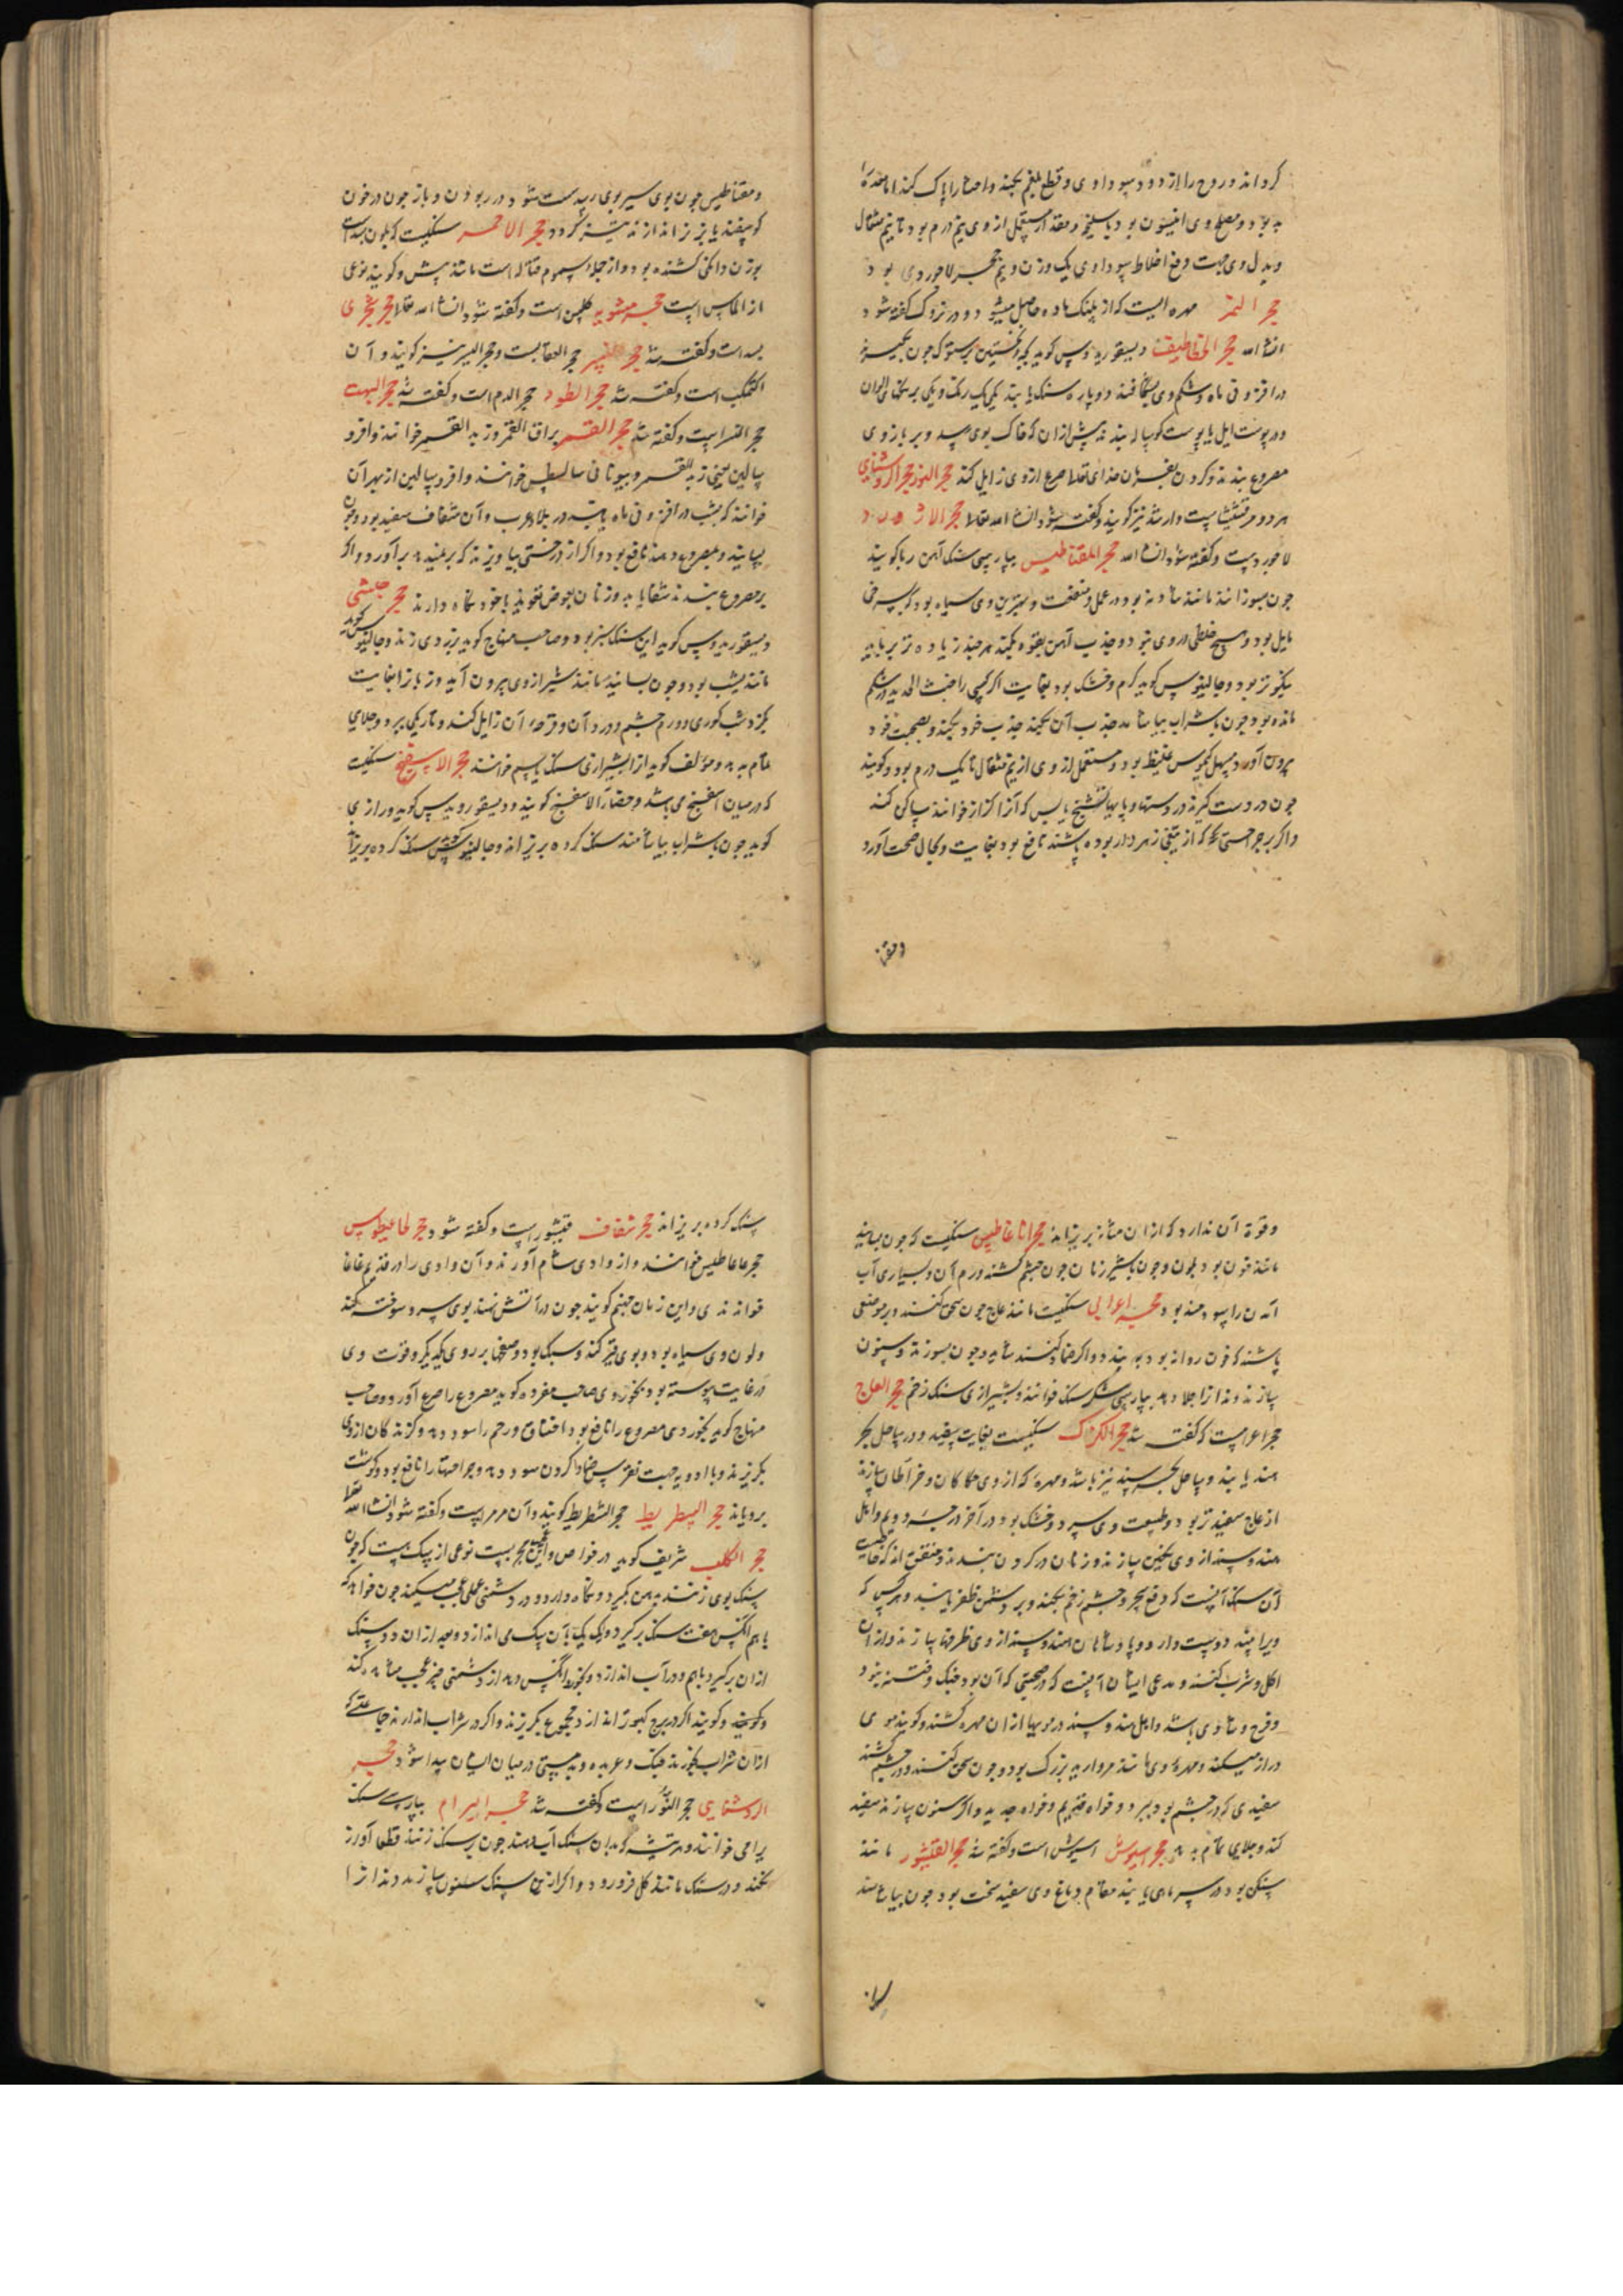 کرداند و روح را از دود سوداوی و قطع بلغم بکند و احشا را پاک کند اما معده را
بد بود و مصلح وی انیسون بود یا سلیخه و مقدار مستعمل از وی نیم درم بود تا نیم مثقال
و بدل وی جهت دفع اخلاط سوداوی یک وزن و نیم حجر لاجوردی بود
حجر النمر مهره ایست که از پلنک ماده حاصل میشود و در نزوک کفته شود
انشا الله حجر الخطاطیف دیسقوریدوس کوید بچه نخستین پرستوک چون بکیرند
در افزونی ماه و شکم وی بشکافند دو پاره سنک یابند یکی یک رنک و یکی برنکهای الوان
در پوست ایل یا پوست کوساله بندند پیش از آن که خاک بوی رسد و بر بازوی
مصروع بندند و کردن بفرمان خدای تعالی صرع از وی زایل کند حجر النور حجر الروشنایی
هر دو مرقشیشاست و ارشد نیز کویند و کفته شود انشا الله تعالی حجر الازورد
لاجوردست و کفته شود انشا الله حجر المقناطیس بپارسی سنک آهن ربا کویند
چون بسوزانند مانند شادنه بود در عمل و منفعت و بهترین وی سیاه بود که بسرخی
مایل بود و هیچ خلطی در وی نبود و جذب آهن بقوه بکند هر چند زیاده تر برباید
نیکوتر بود و جالینوس کوید کرم و خشک بود بغایت اکر کسی را خبث الحدید در شکم
مانده بود چون با شراب بیاشامد جذب آن بکند جذب خود بکند و بصحبت خود
بیرون آورد و مسهل کیموس غلیظ بود و مستعمل از وی از نیم مثقال تا یک درم بود و کویند
چون در دست کیرند درد دستها و پایها و تشنج یابس که آنرا کزاز خوانند ساکن کند
و اکر بر جراحتی که از تیغی زهردار بوده باشند نافع بود بغایت و بحال صحت آورد
ومقنا
و مقناطیس چون بوی سیر بوی رسد سست شود در ربودن و باز چون در خون
کوسفند یا بز نر اندازند تیز کردد حجر الاحمر سنکیست که بلون بسد است
بوزن دانکی کشنده بود و از جمله سموم قتاله است مانند بیش و کویند نوعی
از الماس است حجر مشویه کلس است و کفته شود انشا الله تعالی حجر شجری
بسد است و کفته شد حجر حجر العقابست و حجر الیسر نیز کویند و آن
اکتمکت است و کفته شد حجر الطور حجر الدم است و کفته شد حجر البهت
حجر النسر است و کفته شد حجر القمر بزاق القمر و زبد القمر خوانند و افرو
سالین یعنی زبد القمر و بیونانی سالنیطس خوانند و افرو سالین از بهر آن
خوانند که بشب در افزونی ماه یابند در بلاد عرب و آن شفاف سفید بود و چون
بسایند و بمصروع دهند نافع بود و اکر از درختی بیاویزند که بر نبندد بر آورد و اکر
بر مصروع بندند شفا یابد و زنان بعوض تعویذ با خود نکاه دارند حجر حبشی
دیسقوریدوس کوید این سنک سبز بود و صاحب منهاج کوید بزردی زند و جالینوس کوید
مانند یشب بود و چون بسایند مانند شیر از وی بیرون آید و زبان را بغایت
بکزد شب کوری و ورم چشم و درد آن و قرحه آن زایل کند و تاریکی ببرد و جلای
تمام بدهد و مؤلف کوید از ابشیرازی سنک باسم خوانند حجر الاسفنج سنکیست
که در میان اسفنج می باشد و حصاة الاسفنج کویند و دیسقوریدوس کوید و رازی
کوید چون با شراب بیاشامند سنک کرده بریزاند و جالینوس کوید سنک کرده بریزاند
و قوة آن ندارد که از آن مثانه بریزاند حجر اناغاطیس سنکیست که چون بسایند
مانند خون بود بلون و چون با شیر زنان چون چشم کشند ورم آن و بسیاری آب
آمدن را سودمند بود حجر اعرابی سنکیست مانند عاج چون سحق کنند و بر موضعی
پاشند که خون روانه بود ببندد و اکر ضماد کنند شاید و چون بسوزند و سنون
سازند دندانرا جلا دهد بپارسی شکر سنک خوانند و بشیرازی سنک زخم حجر العاج
حجر اعرابیست که کفته شد حجر الکرک سنکیست بغایت سفید و در ساحل بحر
هند یابند و ساحل بحر سند نیز باشد و مهره که از وی حکاکان و خراطان سازند
از عاج سفیدتر بود و طبیعت وی سرد و خشک بود در آخر درجه دویم و اهل
هند و سند از وی نکین سازند و زنان در کردن بندند و متفق اند که خاصیت
آن سنک آنست که دفع سحر و چشم زخم بکند و بر دشمن ظفر یابند و هر کس که
ویرا ببیند دوست دارد و پادشاهان هند و سند از وی ظرفها سازند و از آن
اکل و شرب کنند و مدعی ایشان آنست که در صحبتی که آن بود جنک و فتنه نبود
و فرح و شادی باشد و اهل هند و سند در مویها از آن مهره کشند و کویند موی
دراز میکند و مهره وی مانند مروارید بزرک بود و چون سحق کنند و در چشم کشند
سفیدی که در چشم بود ببرد و خواه قدیم و خواه جدید و اکر سنون سازند سفید
کند و جلای تمام بدهد حجر اسیوش اسیوش است و کفته شد حجر القیشور مانند
سنکی بود در سر ماهی یابند مقام دماغ وی سفید سخت بود چون بیاشامند
سنک کرده بریزاند حجر شفاف قیشور است و کفته شود حجر لحاغیطوس
حجر غاغاطیس خوانند و از وادی شام آورند و آن وادی را در قدیم غاغا
خوانندی و این زمان جهنم کویند چون در آتش نهند بوی سم سوخته کند
و لون وی سیاه بود و بوی قیر کند و سبک بود و صفحها بر روی یکدیکر و قوت وی
در غایت پیوسته بود بخور وی صاحب مفرده کوید مصروع را صرع آورد و صاحب
منهاج کوید بخور وی مصروع را نافع بود اختناق رحم را سود دهد و کزندکان از وی
بکریزند و با ادویه جهت نقرس ضماد کردن سود دهد و جراحتها را نافع بود و کوشت
برویاند حجر السطریط حجر الشطریط کویند و آن مرمر است و کفته شود انشا الله تعالی
حجر الکلب شریف کوید در خواص و این حجر بسبت نوعی از سک هست که چون
سنک بوی زنند بدهن کیرد و نکاه دارد و در دشمنی عملی عجب میکند چون خواهد که
با هم انکس هفت سنک برکیرد و یک یک بآن سک می اندازد و بعد از آن دو سنک
از آن برکیرد باهم و در آب اندازد و بخورد انکس دهد از دشمنی چیز عجب مشاهده کند
و کویند و کویند اکر در برج کبوتر اندازد مجموع بکریزند و اکر در شراب اندازند جماعتی که
از آن شراب بخورند جنک و عربده و بدمستی در میان ایشان پیدا شود حجر
الروشنایی حجر النور است و کفته شد حجر البرام بپارسی سنک
یرامی خوانند و هر تیشه که بدان سنک آب دهند چون بر سنک زنند قطعا آواز
نکند و در سنک مانند کل فرو رود و اکر از این سنک سنون سازند دندانرا